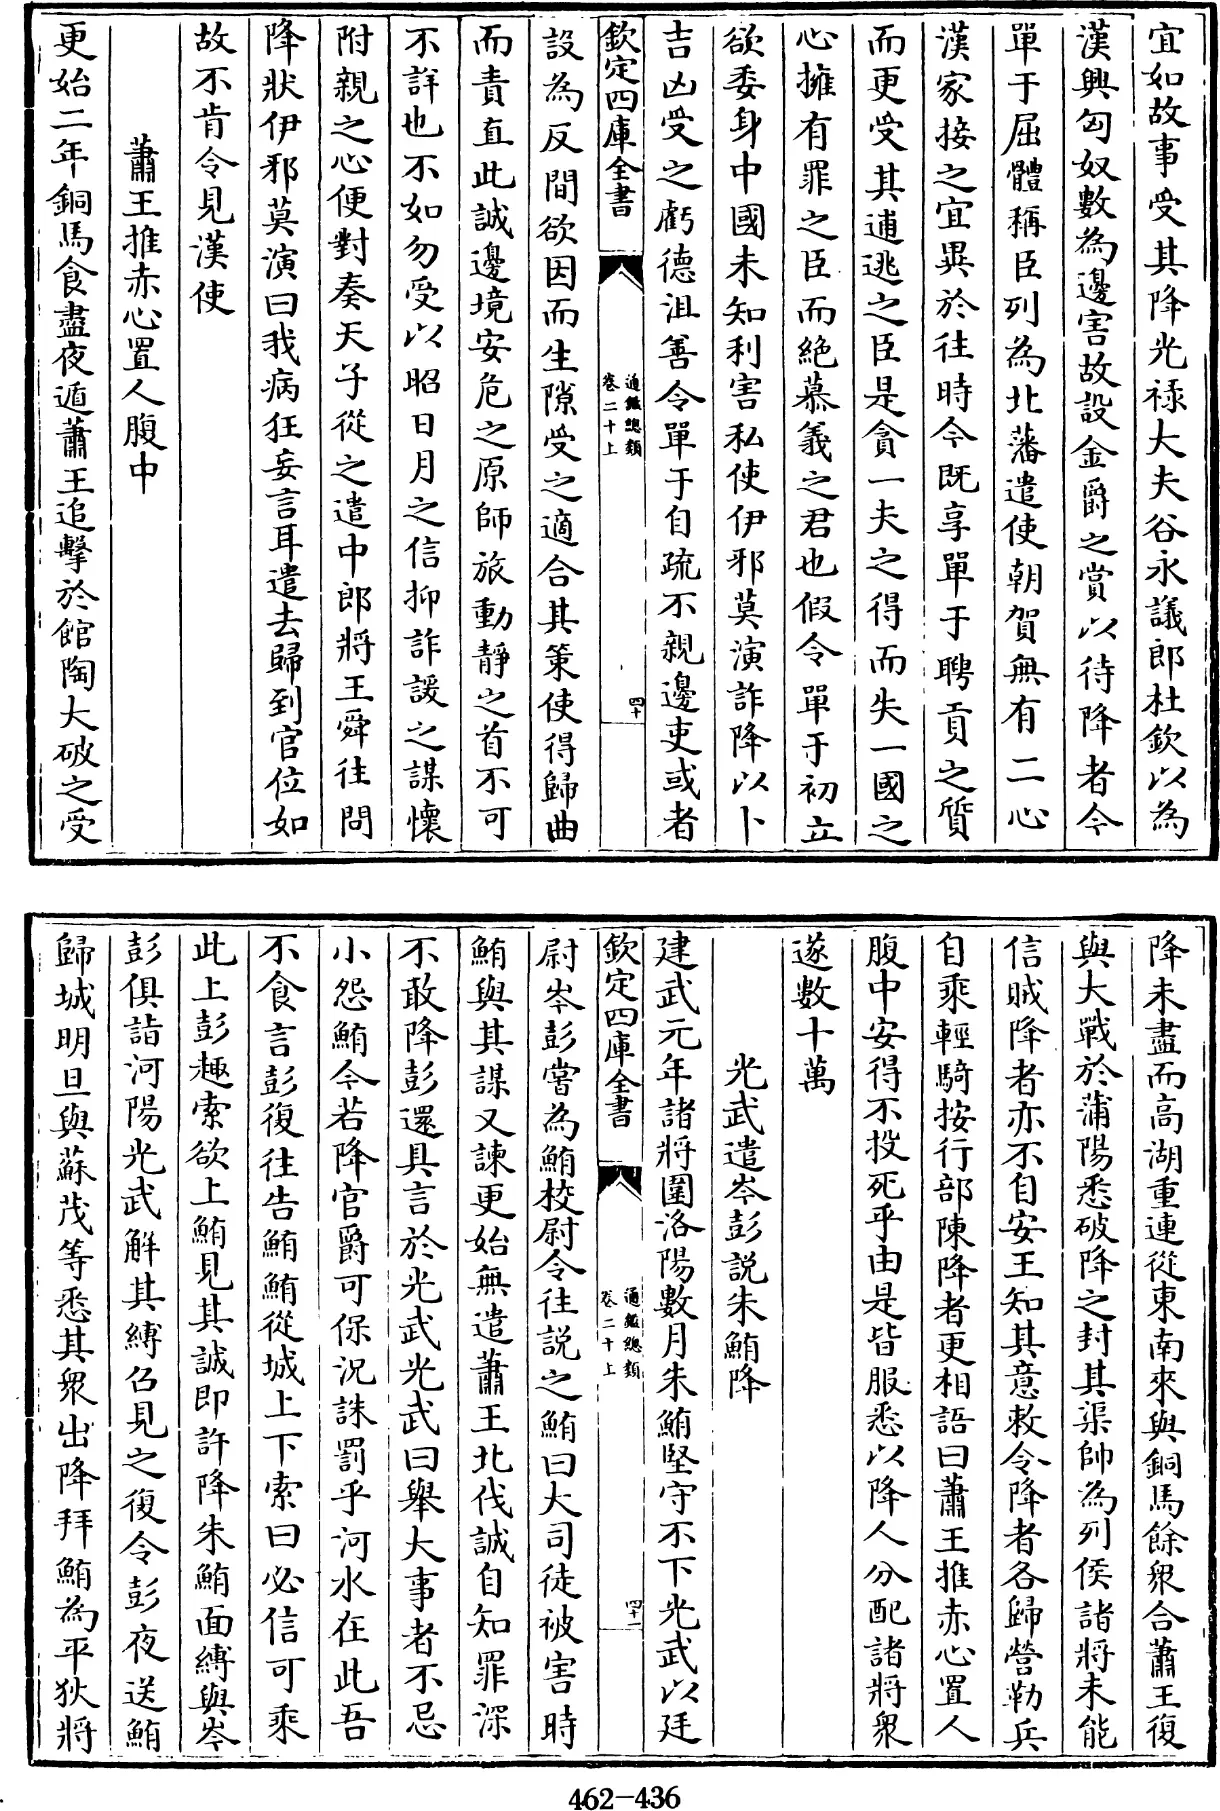 宜如故事受其降光祿大夫谷永議郎杜欽以為
漢興匈奴數為邊害故設金爵之賞以待降者今
單于屈體稱臣列為北藩遣使朝賀無有二心
漢家接之宜異於往時今既享單于聘貢之質
而更受其逋逃之臣是貪一夫之得而失一國之
心擁有罪之臣而絶慕義之君也假令單于初立
欲委身中國未知利害私使伊邪莫演詐降以卜
吉凶受之虧德沮善令單于自疏不親邊吏或者
欽定四庫全書
通鑑總類
卷二十上
四十
設為反間欲因而生隙受之適合其策使得歸曲
而責直此誠邊境安危之原師旅動靜之首不可
不詳也不如勿受以昭日月之信抑詐諼之謀懷
附親之心便對奏天子從之遣中郎將王舜往問
降狀伊邪莫演曰我病狂妄言耳遣去歸到官位如
故不肯令見漢使
蕭王推赤心置人腹中
更始二年銅馬食盡夜遁蕭王追擊於館陶大破之受
降未盡而高湖重連從東南來與銅馬餘衆合蕭王復
與大戰於蒲陽悉破降之封其渠帥為列侯諸將未能
信賊降者亦不自安王知其意敕令降者各歸營勒兵
自乘輕騎按行部陳降者更相語曰蕭王推赤心置人
腹中安得不投死乎由是皆服悉以降人分配諸將衆
遂數十萬
光武遣岑彭説朱鮪降
建武元年諸將圍洛陽數月朱鮪堅守不下光武以廷
欽定四庫全書
通鑑總類
卷二十上
四十一
尉岑彭嘗為鮪校尉令往説之鮪曰大司徒被害時
鮪與其謀又諫更始無遣蕭王北伐誠自知罪深
不敢降彭還具言於光武光武曰舉大事者不忌
小怨鮪今若降官爵可保况誅罰乎河水在此吾
不食言彭復往告鮪鮪從城上下索曰必信可乘
此上彭趣索欲上鮪見其誠即許降朱鮪面縛與岑
彭俱詣河陽光武解其縛召見之復令彭夜送鮪
歸城明旦與蘇茂等悉其衆出降拜鮪為平狄將
462-436